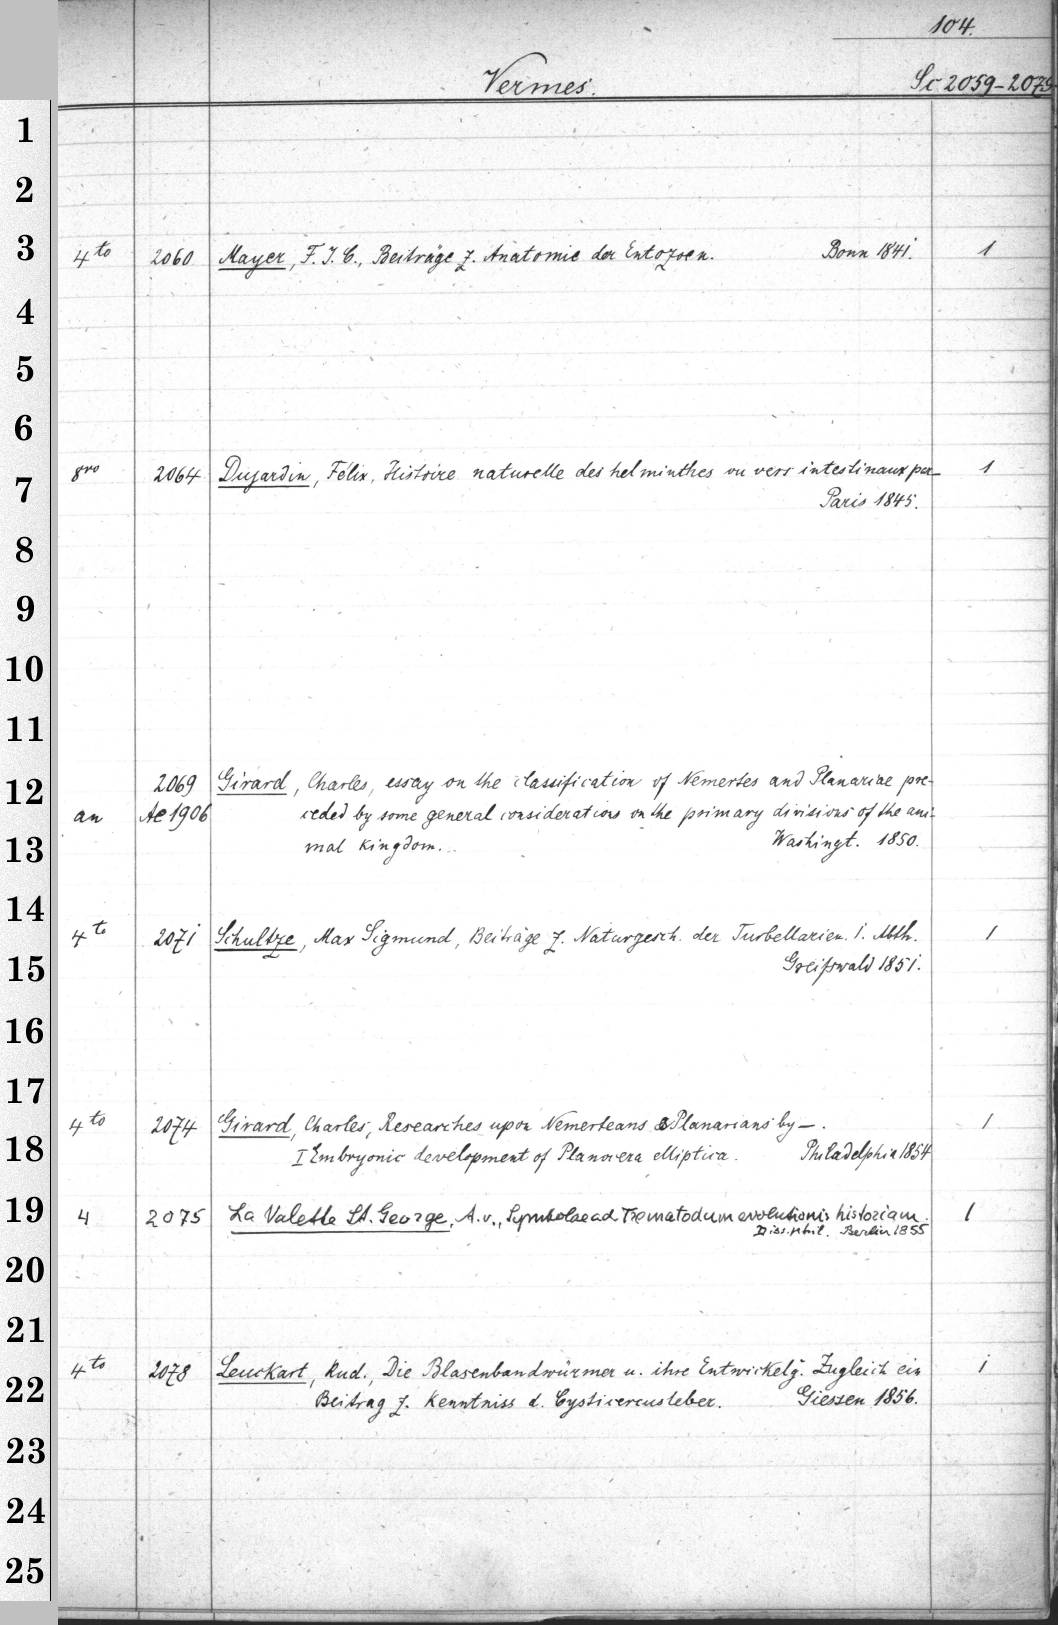 104.
Vermes. Sc 2059-2079
1
2
3 4to 2060 Mayer, F. J. C., Beiträge z. Anatomie der Entozoen. Bonn 1841. 1
4
5
6
8vo 2064 Dujardin, Félix, Histoire naturelle des helminthes ou vers intestinaux par— 1
7 Paris 1845.
8
9
10
11
12 2069 Girard, Charles, essay on the classification of Nemertes and Planariae pre-
an Ae 1906 ceded by some general considerations on the primary divisions of the ani-
13 mal kingdom. Washingt. 1850.
14
4to 2071 Schultze, Max Sigmund, Beiträge z. Naturgesch. der Turbellarien. 1. Abth. 1
15 Greifswald 1851.
16
17
4to 2074 Girard, Charles, Researches upon Nemerteans & Planarians by —. 1
18 I Embryonic development of Planocera elliptica. Philadelphia 1854
19 4 2075 La Valette St. George, A. v., Symbolae ad Trematodum evolutionis historiam. 1
Diss. phil. Berlin 1855
20
21
4to 2078 Leuckart, Rud., Die Blasenbandwürmer u. ihre Entwickelg. Zugleich ein 1
22 Beitrag z. Kenntniss d. Cysticercusleber. Giessen 1856.
23
24
25